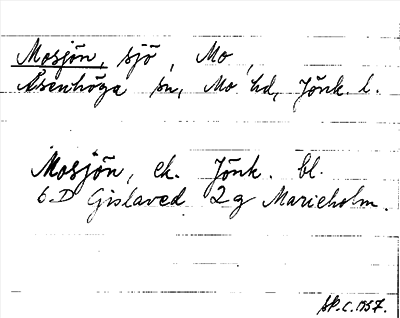 Mosjön, sjö, Mo,
Åsenhöga sn, Mo hd, Jönk. l.
Mosjön, ek. Jönk. bl.
6D Gislaved 2g Marieholm.
SP.C. 1957.